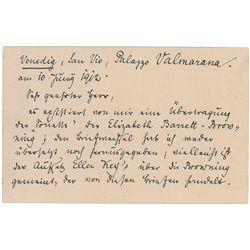 Venedig, San Vio, Palazzo Valmarana.
am 10 Juny 1912.
Sehr geehrter Herr,
es existiert von mir eine Übertragung
der "Sonette" der Elizabeth Barrett-Brow-
ning; den Briefwechsel hab ich weder
übersetzt noch herausgegeben; vielleicht ist
der Aufsatz Ellen Key's über die Browning
gemeint, der von diesen Briefen handelt.